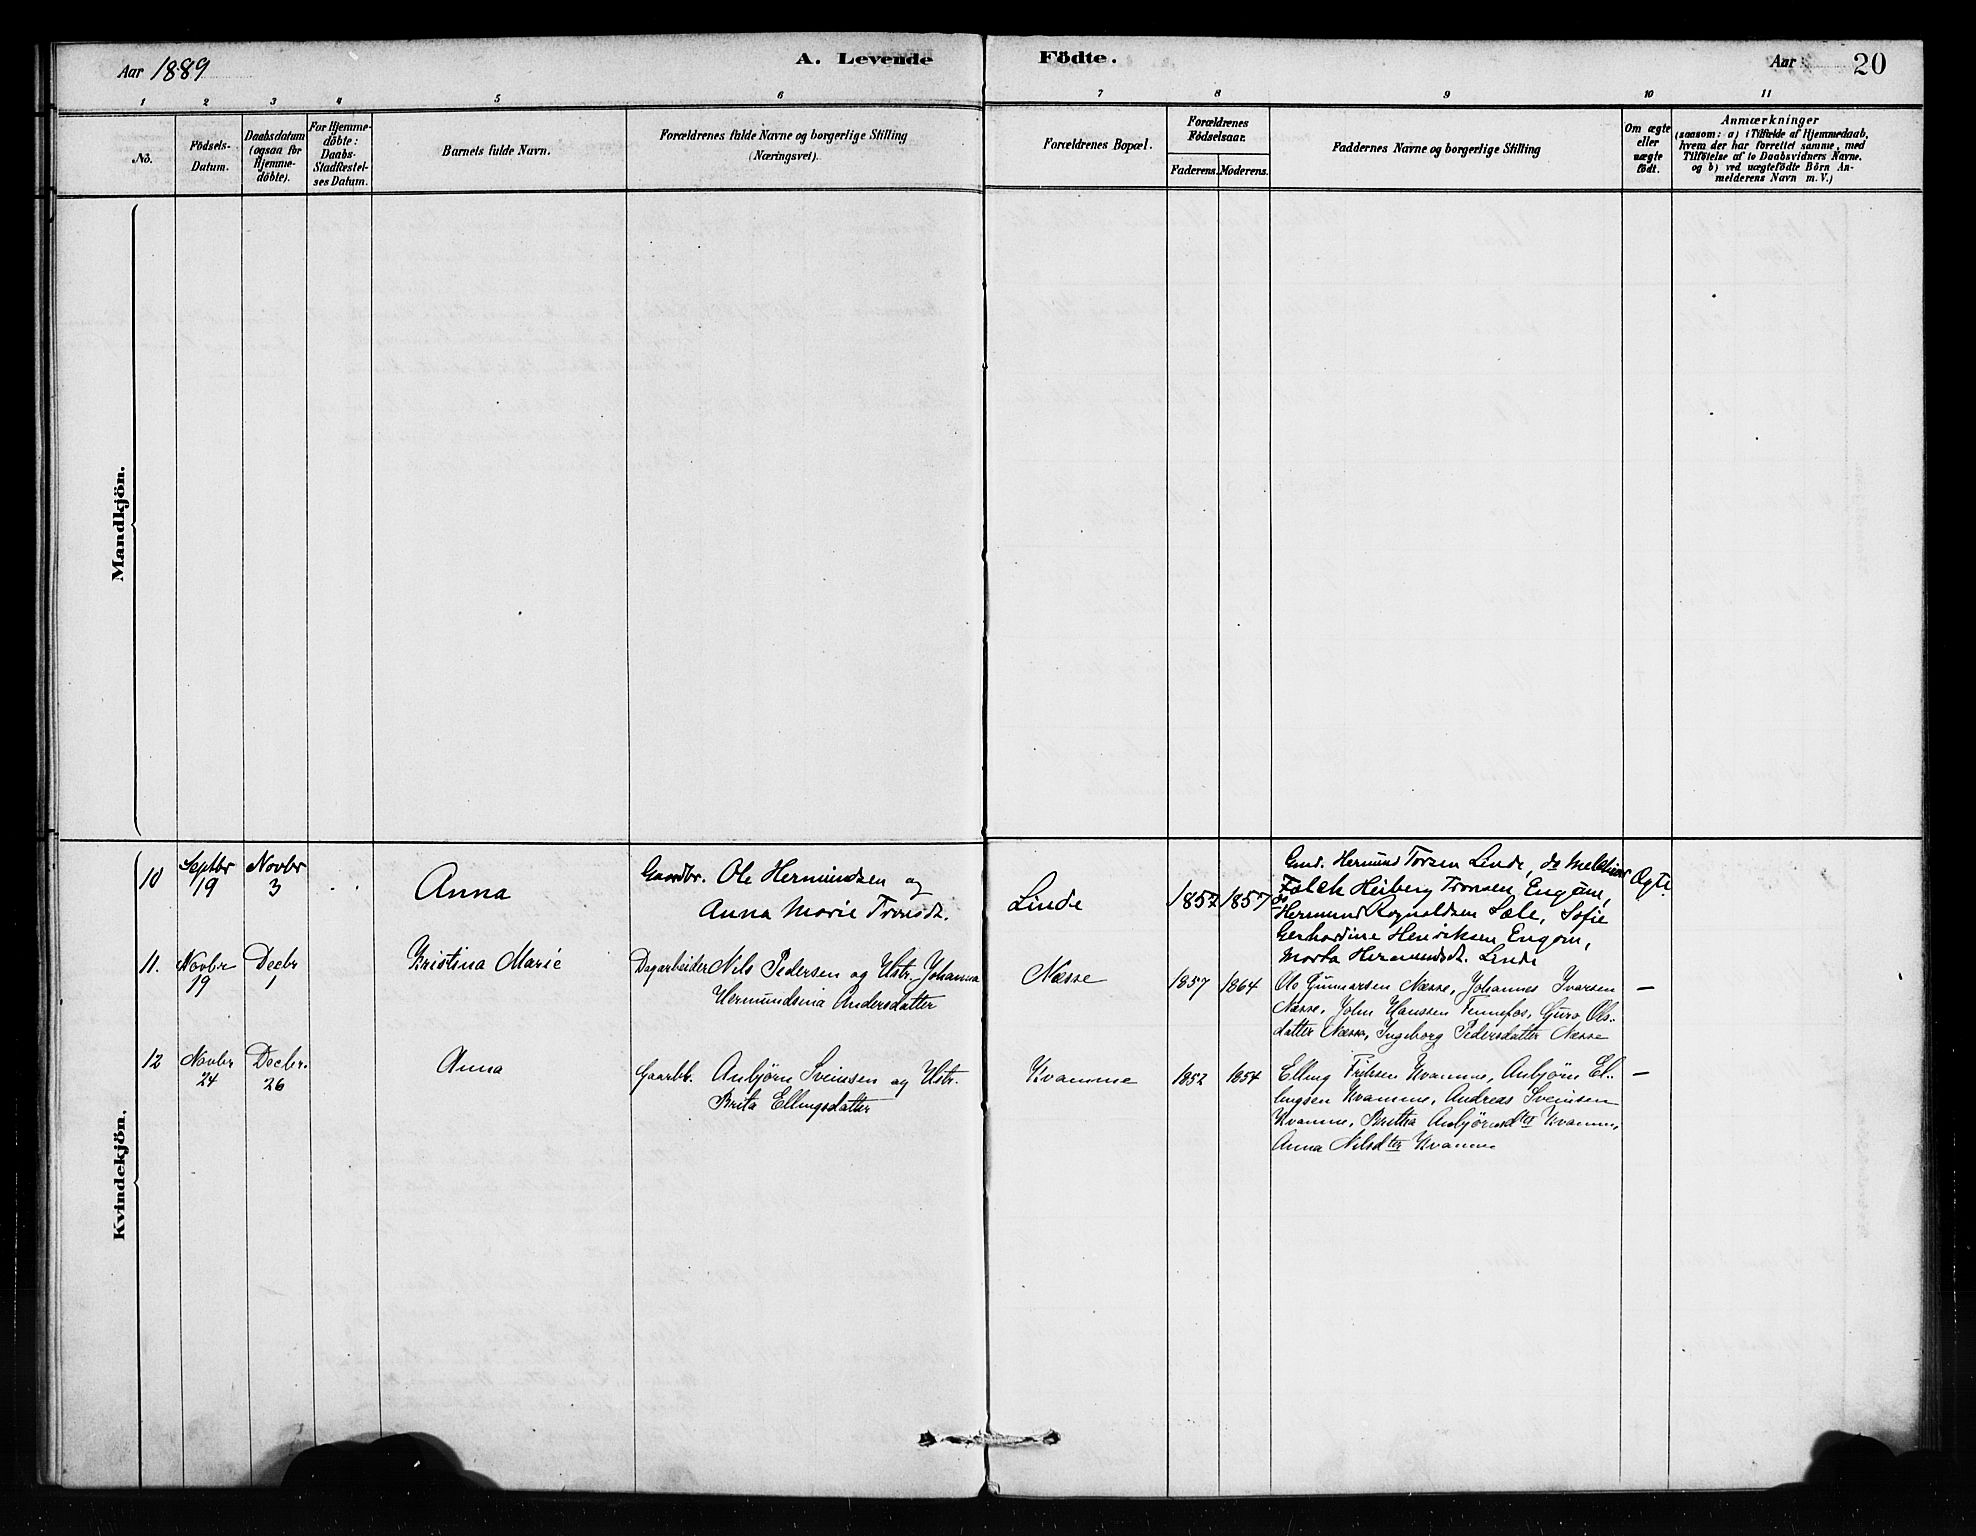 Aar 1889
A. Levende Födte.
Aar
20
1 2 3 4 5 6 7 8 9 10 11
No.
Födsels-
Datum.
Daabsdatum
(ogsaa for
Hjemme-
döbte).
For Hjemme-
döbte:
Daabs-
Stadfæstel-
ses Datum.
Barnets fulde Navn.
Forældrenes fulde Navne og borgerlige Stilling
(Næringsvei).
Forældrenes Bopæl.
Forældrenes
Födselsaar.
Faderens. Moderens.
Faddernes Navne og borgerlige Stilling
Om ægte
eller
uægte
födt.
Anmærkninger
(saasom: a) i Tilfælde af Hjemmedaab,
hvem der har forrettet samme, med
Tilföielse af to Daabsvidners Navne.
og b) ved uægtefödte Börn An-
melderens Navn m. V.)
Mandkjön.
Kvindekjön.
10
Septbr
19
Novbr
3
Anna
Gaardbr. Ole Hermundsen og
Anna Marie Tronsdt.
Linde
1852 1857
Gmd. Hermund Torsen Linde, do Melchior
Falck Heiberg Tronsen Engom, do
Hermund Rognaldsen Sæle, Sofie
Gerhardine Henriksen Engom,
Marta Hermundsdt. Linde
Ægte
11.
Novbr
19
Decbr
1
Kristina Marie
Dagarbeider Nils Pedersen og Hstr. Johanna
Hermundsina Andersdatter
Næsse
1857 1864
Ole Gunnarsen Næsse, Johannes Ivarsen
Næsse, John Hanssen Finnefos, Guro Ols-
datter Næsse, Ingeborg Pedersdatter Næsse
—
12
Novbr
24
Decbr.
26
Anna
Gaarbb. Anbjørn Sveinsen og Hstr.
Brita Ellingsdatter
Kvamme
1852 1854
Elling Eriksen Kvamme, Anbjørn El-
lingsen Kvamme, Andreas Sveinsen
Kvamme, Britha Anbjørnsdter Kvamme,
Anna Nilsdter Kvamme
—